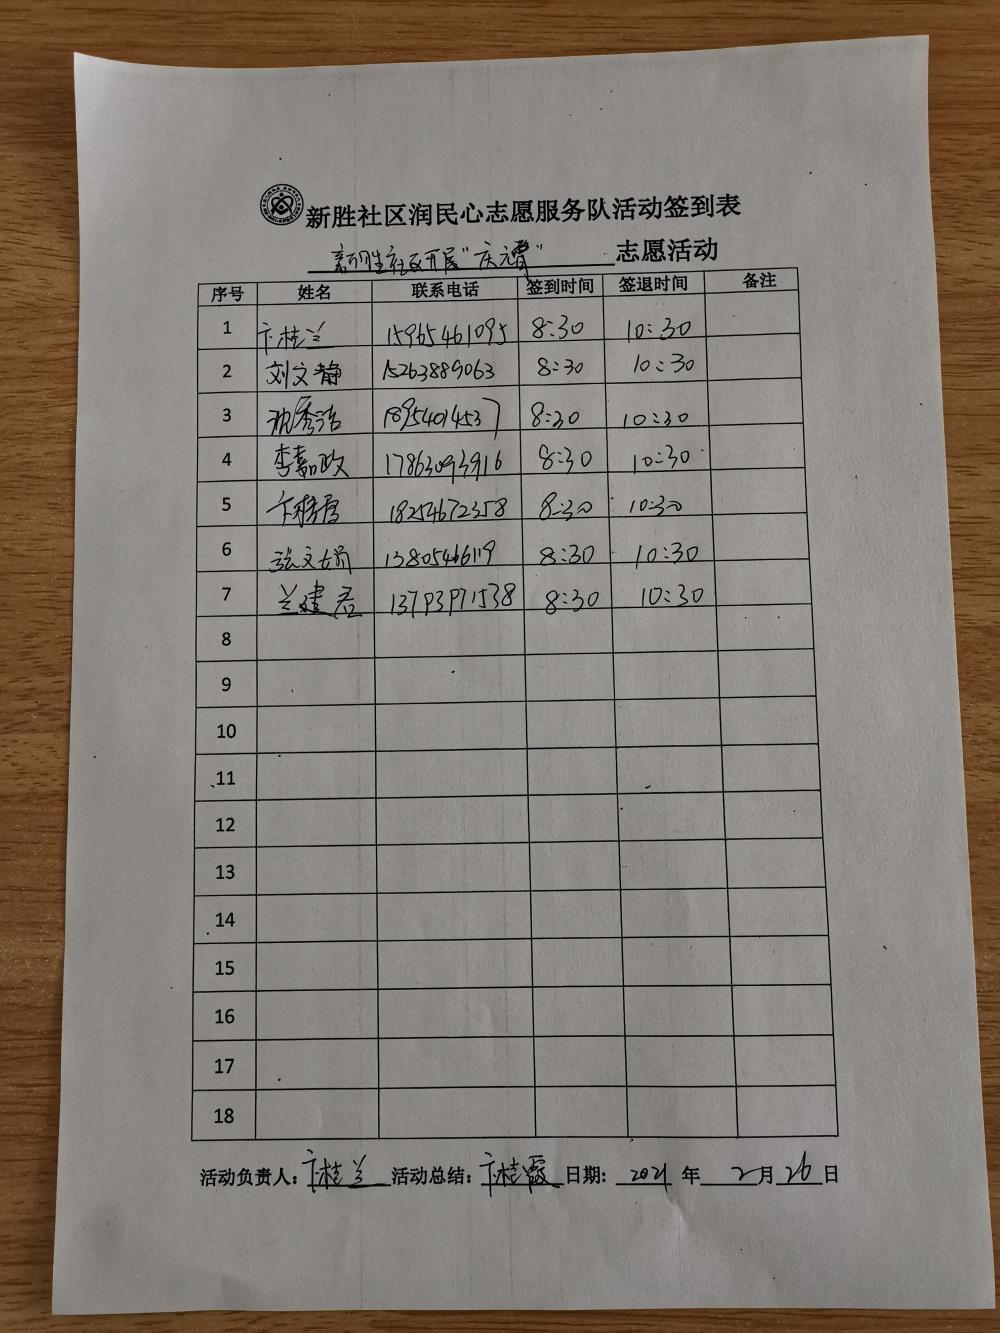 新胜社区润民心志愿服务队活动签到表
新胜社区开展“庆元宵” 志愿活动
序号 姓名 联系电话 签到时间 签退时间 备注
1 卞桂兰 15965461095 8:30 10:30
2 刘文静 15263889063 8:30 10:30
3 18954014537 8:30 10:30
4 李嘉政 17863093916 8:30 10:30
5 18254672358 8:30 10:30
6 张文娟 13805466119 8:30 10:30
7 兰建君 13793971538 8:30 10:30
8
9
10
11
12
13
14
15
16
17
18
活动负责人：卞桂兰 活动总结：卞桂霞 日期：2021 年 2月26日